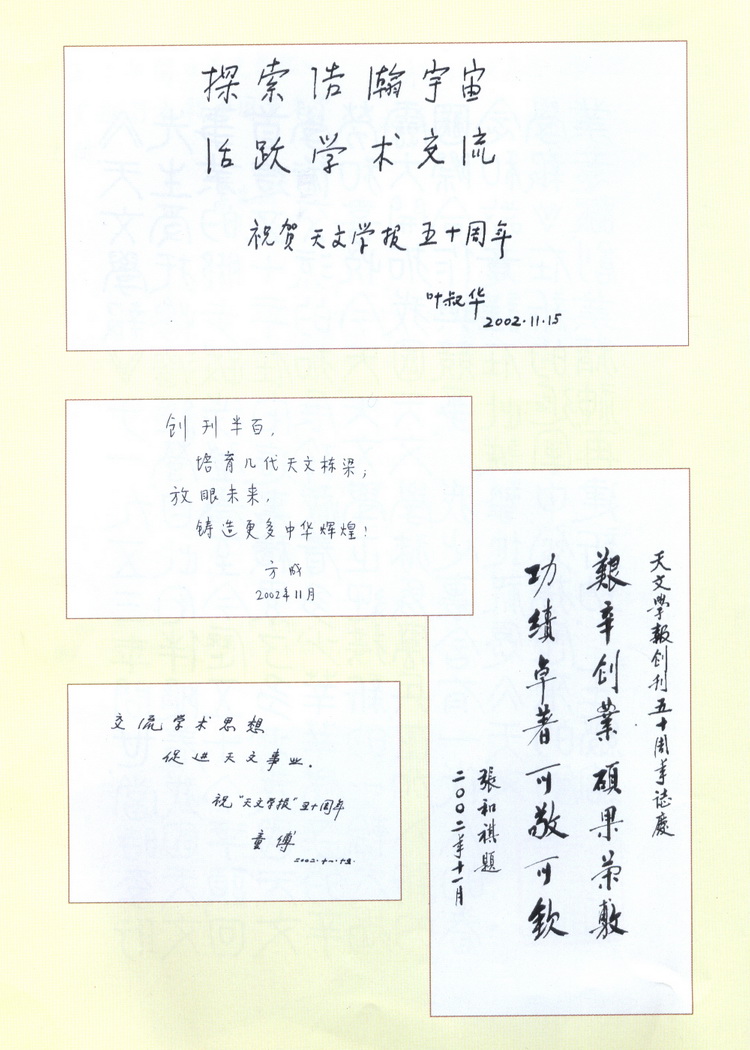 探索浩瀚宇宙
活跃学术交流
祝贺天文学报五十周年
叶叔华
2002.11.15
创刊半百，
培育几代天文栋梁；
放眼未来，
铸造更多中华辉煌！
方成
2002年11月
天文学報创刊五十周年誌慶
艱辛创業硕果荣敷
功績卓著可敬可欽
張和祺題
二〇〇二年十一月
交流学术思想
促进天文事业.
祝"天文学报"五十周年
童傅
2002.十一.十五.